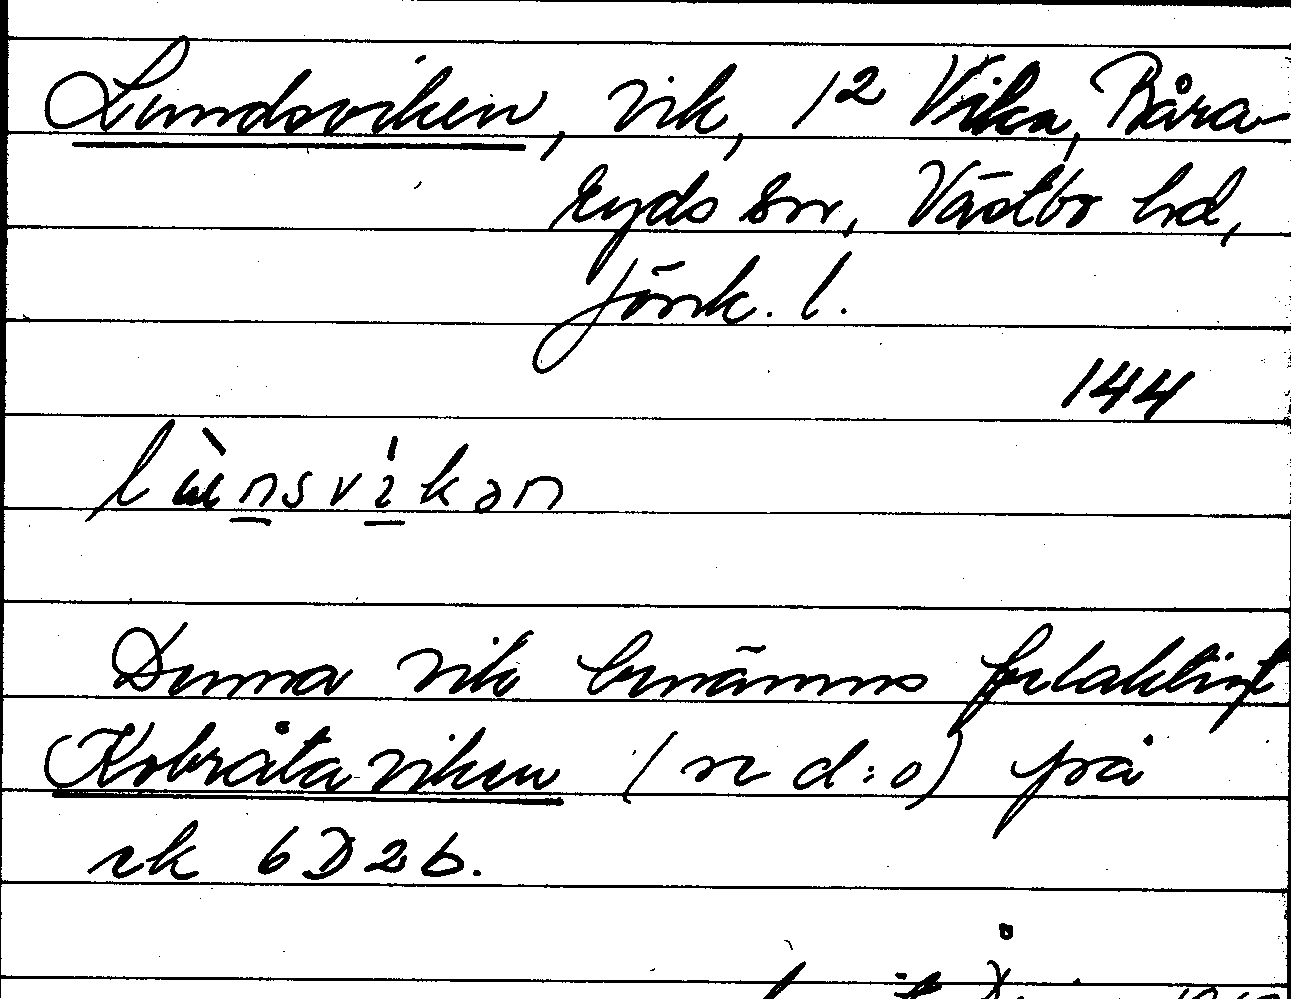 Lundsviken, vik, 12 Vika, Båra-
ryds sn, Västbo hd,
Jönk. l.
144
lu̇nsvikən
Denna vik benämns felaktigt
Kobråtaviken (se d:o) på
ek 6D2b.